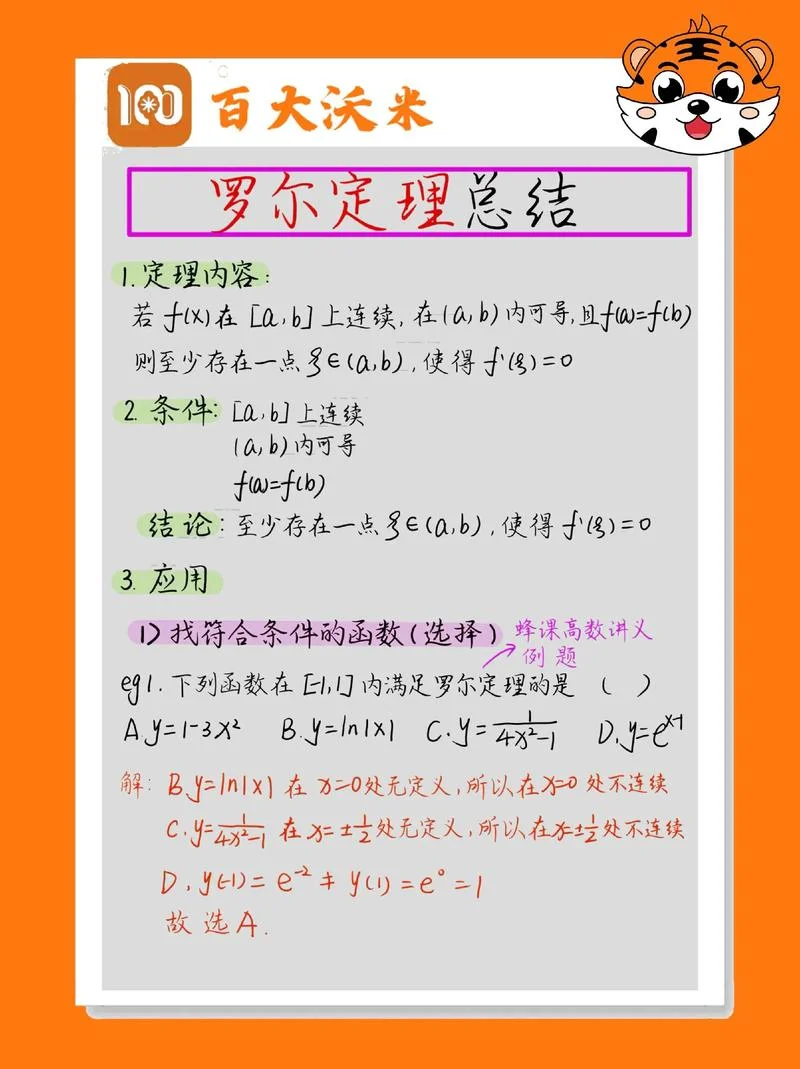 100 百大沃米
罗尔定理总结
1.定理内容:
若 f(x)在 [a,b] 上连续, 在(a,b)内可导,且f(a)=f(b)
则至少存在一点 ξ∈(a,b), 使得 f'(ξ)=0
2. 条件: [a,b] 上连续
(a,b)内可导
f(a)=f(b)
结论: 至少存在一点 ξ∈(a,b), 使得 f'(ξ)=0
3. 应用
1) 找符合条件的函数(选择) 蜂课高数讲义
例题
eg1. 下列函数在 [-1,1] 内满足罗尔定理的是 ( )
A.y=1-3x² B.y=ln|x| C.y=1/(4x²-1) D.y=e^(x-1)
解: B.y=ln|x| 在 x=0处无定义,所以在x=0 处不连续
C.y=1/(4x²-1) 在 x=±1/2处无定义,所以在x=±1/2处不连续
D. y(-1)=e⁻²≠y(1)=e⁰=1
故选A.